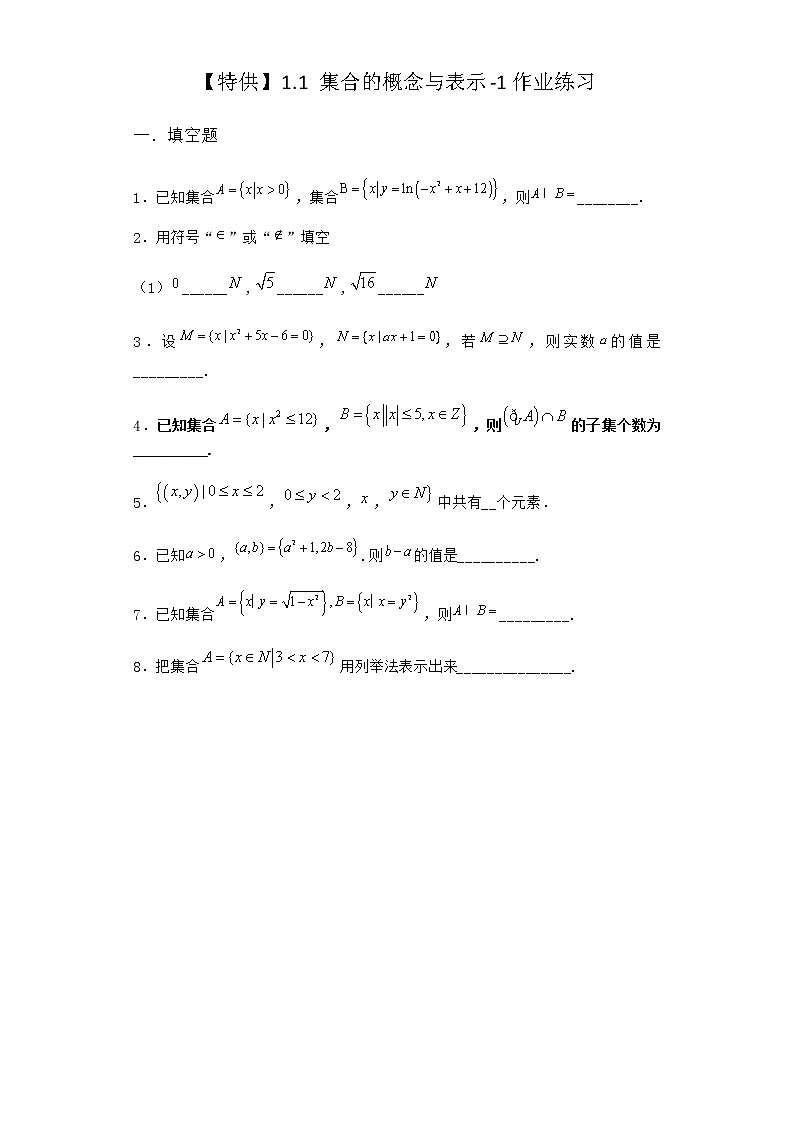 【特供】1.1 集合的概念与表示-1作业练习
一. 填空题
1.已知集合A={x|x>0},集合B={x|y=ln(-x²+x+12)},则A I B=________.
2.用符号“∈”或“∉”填空
(1)0______N,√5______N,√16______N
3.设M={x|x²+5x-6=0},N={x|ax+1=0},若M⊇N,则实数a的值是
_________.
4.已知集合A={x|x²≤12},B={x||x|≤5,x∈Z},则(ðᵤA)∩B的子集个数为
__________.
5.{(x,y)|0≤x≤2,0≤y<2,x,y∈N}中共有__个元素.
6.已知a>0,{a,b}={a²+1,2b-8}.则b-a的值是__________.
7.已知集合A={x|y=√(1-x²)},B={x|x=y²},则A I B=_________.
8.把集合A={x∈N|3<x<7}用列举法表示出来_______________.